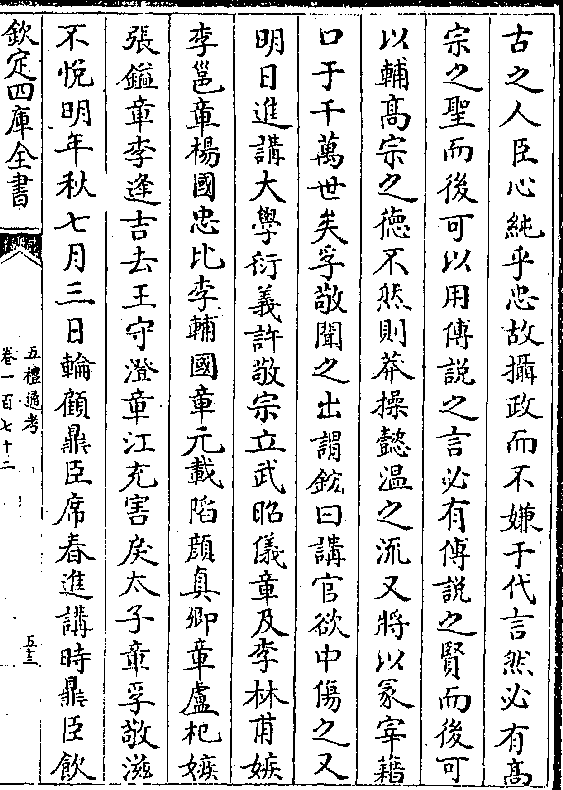 古之人臣心純乎忠故攝政而不嫌于代言然必有髙
宗之聖而後可以用傅説之言必有傅説之賢而後可
以輔髙宗之德不然則莽操懿温之流又將以冢宰藉
口于千萬世矣孚敬聞之出謂鈗曰講官欲中傷之又
明日進講大學衍義許敬宗立武昭儀章及李林甫嫉
李邕章楊國忠比李輔國章元載陷顔真卿章盧杞嫉
張鎰章李逢吉去王守澄章江充害戾太子章孚敬滋
不悦明年秋七月三日輪顧鼎臣席春進講時鼎臣飲
欽定四庫全書
五禮通考
卷一百七十二
五三